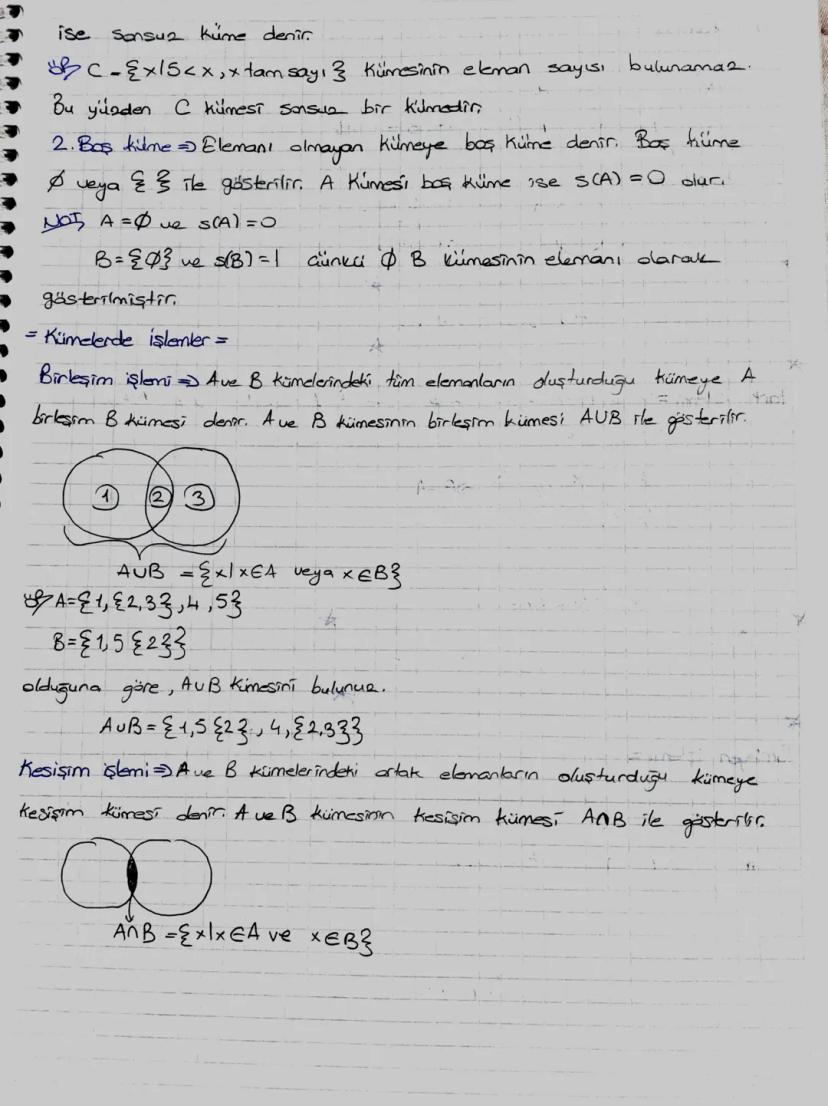 ise sonsuz küme denir.
Ör/ C = {x|5<x, x tam sayı} kümesinin eleman sayısı bulunamaz.
Bu yüzden C kümesi sonsuz bir kümedir.
2. Boş küme ⇒ Elemanı olmayan kümeye boş küme denir. Boş küme
Ø veya { } ile gösterilir. A kümesi boş küme ise s(A) = 0 olur.
NOT, A = Ø ve s(A) = 0
B = {Ø} ve s(B) = 1 çünkü Ø B kümesinin elemanı olarak
gösterilmiştir.
= Kümelerde işlemler =
Birleşim işlemi ⇒ A ve B kümelerindeki tüm elemanların oluşturduğu kümeye A
birleşim B kümesi denir. A ve B kümesinin birleşim kümesi A∪B ile gösterilir.
1 2 3
A∪B = {x|x∈A veya x∈B}
Ör/ A = {1, {2,3}, 4, 5}
B = {1,5 {2}}
olduğuna göre, A∪B kümesini bulunuz.
A∪B = {1,5 {2}, 4, {2,3}}
Kesişim işlemi ⇒ A ve B kümelerindeki ortak elemanların oluşturduğu kümeye
kesişim kümesi denir. A ve B kümesinin kesişim kümesi A∩B ile gösterilir.
A∩B = {x|x∈A ve x∈B}